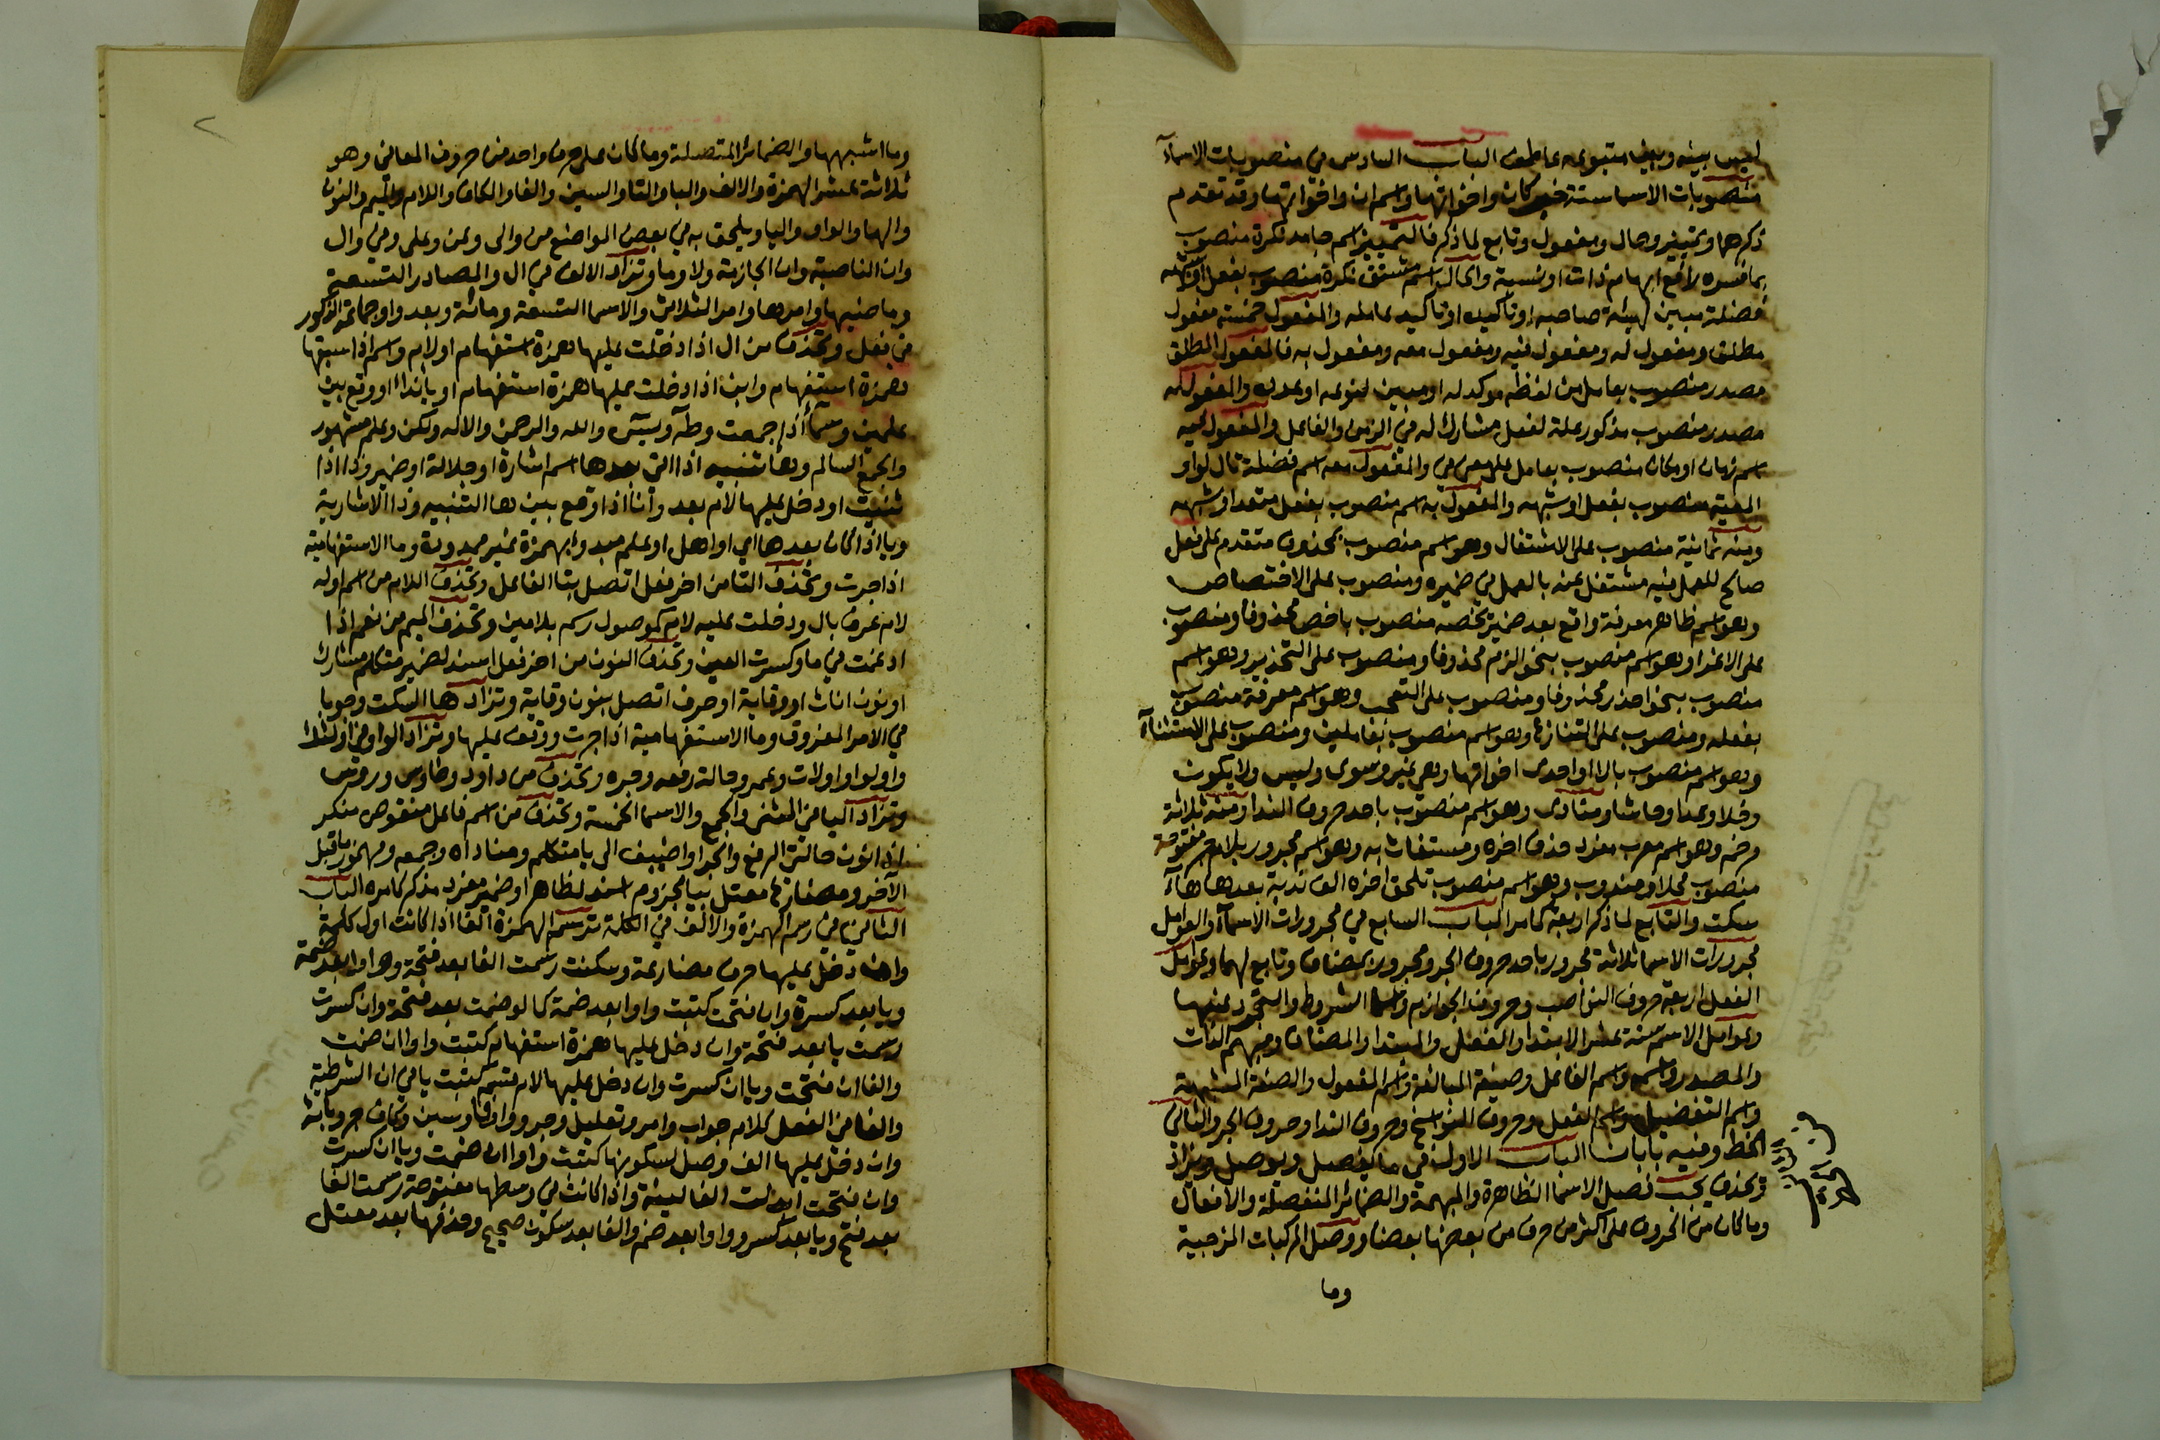 ليس بينه وبين متبوعه عاطف الباب السادس في منصوبات الاسمآء
منصوبات الاسما ستة خبر كان واخواتها واسم ان واخواتها وقد تقدم
ذكرهما وتمييز وحال ومفعول وتابع لما ذكر فالتمييز اسم جامد نكرة منصوب
بما فسره رافع ابهام ذات او نسبة والحال اسم مشتق نكرة منصوب بفعل او شبهه
فضلة مبين لهيئة صاحبه او تاكيده او تاكيد عامله والمفعول خمسة مفعول
مطلق ومفعول له ومفعول فيه ومفعول معه ومفعول به فالمفعول المطلق
مصدر منصوب بعامل من لفظه موكد له او مبين لنوعه او عدده والمفعول له
مصدر منصوب مذكور علة لفعل مشارك له في الزمن والفاعل والمفعول فيه
اسم زمان او مكان منصوب بعامل على معنى في والمفعول معه اسم فضلة تال لواو
المعية منصوب بفعل او شبهه والمفعول به اسم منصوب بفعل متعد او شبهه
ومنه ثمانية منصوب على الاشتغال وهو اسم منصوب بمحذوف متقدم على فعل
صالح للعمل فيه مشتغل عنه بالعمل في ضميره ومنصوب على الاختصاص
وهو اسم ظاهر معرفة واقع بعد ضمير يخصه منصوب باخص محذوفا ومنصوب
على الاغرا وهو اسم منصوب بنحو الزم محذوفا ومنصوب على التحذير وهو اسم
منصوب بنحو احذر محذوفا ومنصوب على التعجب وهو اسم معرفة منصوب
بفعله ومنصوب على التنازع وهو اسم منصوب بعاملين ومنصوب على الاستثنآء
وهو اسم منصوب بالا او احدى اخواتها وهي غير وسوى وليس ولا يكون
وخلا وعدا وحاشا ومنادى وهو اسم منصوب باحد حروف الندا ومنه ثلاثة
مرخم وهو اسم معرب مفرد حذف اخره ومستغاث به وهو اسم مجرور بلام جر مفتوحة
منصوب محلا ومندوب وهو اسم منصوب تلحق اخره الف ندبة بعدها هآء
سكت والتابع لما ذكر اربعة كما مر الباب السابع في مجرورات الاسمآء والعوامل
مجرورات الاسما ثلاثة مجرور باحد حروف الجر ومجرور بمضاف وتابع لهما وعوامل
الفعل اربعة حروف النواصب وحروف الجوازم واسما الشروط والتجرد عنها
وعوامل الاسم ستة عشر الابتدا والفعل والمبتدا والمضاف ومبهم الذات
والمصدر واسمه واسم الفاعل وصيغة المبالغة واسم المفعول والصفة المشبهة
واسم التفضيل واسم الفعل وحروف النواسخ وحروف الندا وحروف الجر والثاني
الخط وفيه بابان الباب الاول في ما يفصل ويوصل ويزاد
ويحذف يجب فصل الاسما الظاهرة والمبهمة والضمائر المنفصلة والافعال
وما كان من الحروف على اكثر من حرف من بعضها بعضا ووصل المركبات المزجية
وما
وما اشبهها والضمائر المتصلة وما كان على حرف واحد من حروف المعاني وهو
ثلاثة عشر الهمزة والالف والبا والتا والسين والفا والكاف واللام والميم والنون
والها والواو واليا ويلحق به في بعض المواضع من والى وعن وعلى وفي وال
وان الناصبة وان الجازمة ولا وما وتزاد الالف في ال والمصادر التسعة
وماضيها وامرها وامر الثلاثي والاسما التسعة ومائة وبعد واو جماعة الذكور
من فعل وتحذف من ال اذا دخلت عليها همزة استفهام او لام واسم اذا سبقها
همزة استفهام وابن اذا دخلت عليها همزة استفهام او يا ندا او وقع بين
علمين وسمآ اذا جمعت وطه ويس والله والرحمن والاله ولكن وعلم مشهور
والجمع السالم وها تنبيه اذا اتى بعدها اسم اشارة او جلالة او ضمير وذا اذا
ثنيت او دخل عليها لام بعد وانا اذا وقع بين ها التنبيه وذا الاشارية
ويا اذا كان بعدها اي او اهل او علم مبدو بهمزة غير ممدودة وما الاستفهامية
اذا جرت وتحذف التا من اخر فعل اتصل بتا الفاعل وتحذف اللام من اسم اوله
لام عرف بال ودخلت عليه لام كموصول رسم بلامين وتحذف الميم من نعم اذا
ادغمت في ما وكسرت العين وتحذف النون من اخر فعل اسند لضمير متكلم مشارك
او نون اناث او وقاية او حرف اتصل بنون وقاية وتزاد ها السكت وجوبا
في الامر المفروق وما الاستفهامية اذا جرت ووقف عليها وتزاد الواو في اولئك
واولوا واولات وعمرو حالة رفعه وجره وتحذف من داود وطاوس وروس
وتزاد اليا في المثنى والجمع والاسما الخمسة وتحذف من اسم فاعل منقوص منكر
اذا نون حالتي الرفع والجر او اضيف الى يا متكلم ومناداه وجمعه ومهموز ما قبل
الآخر ومضارع معتل بيا مجزوم اسند لظاهر او ضمير مفرد مذكر كامره الباب
الثاني في رسم الهمزة والالف في الكلمة ترسم الهمزة الفا اذا كانت اول كلمة
واذا دخل عليها حرف مضارعة وسكنت رسمت الفا بعد فتحة وواوا بعد ضمة
ويا بعد كسرة وان فتحت كتبت واوا بعد ضمة كما لو ضمت بعد فتحة وان كسرت
رسمت يا بعد فتحة وان دخل عليها همزة استفهام كتبت واوا ان ضمت
والفا ان فتحت ويا ان كسرت وان دخل عليها لام قسم كتبت يا في ان الشرطية
والفا في الفعل كلام جواب وامر وتعليل وجر وواو وفا وسين وكاف جر وبائه
وان دخل عليها الف وصل لسكونها كتبت واوا ان ضمت ويا ان كسرت
وان فتحت ابدلت الفا لينة واذا كانت في وسطها مفتوحة رسمت الفا
بعد فتح ويا بعد كسر وواوا بعد ضم والفا بعد سكون صحيح وحذفها بعد معتل